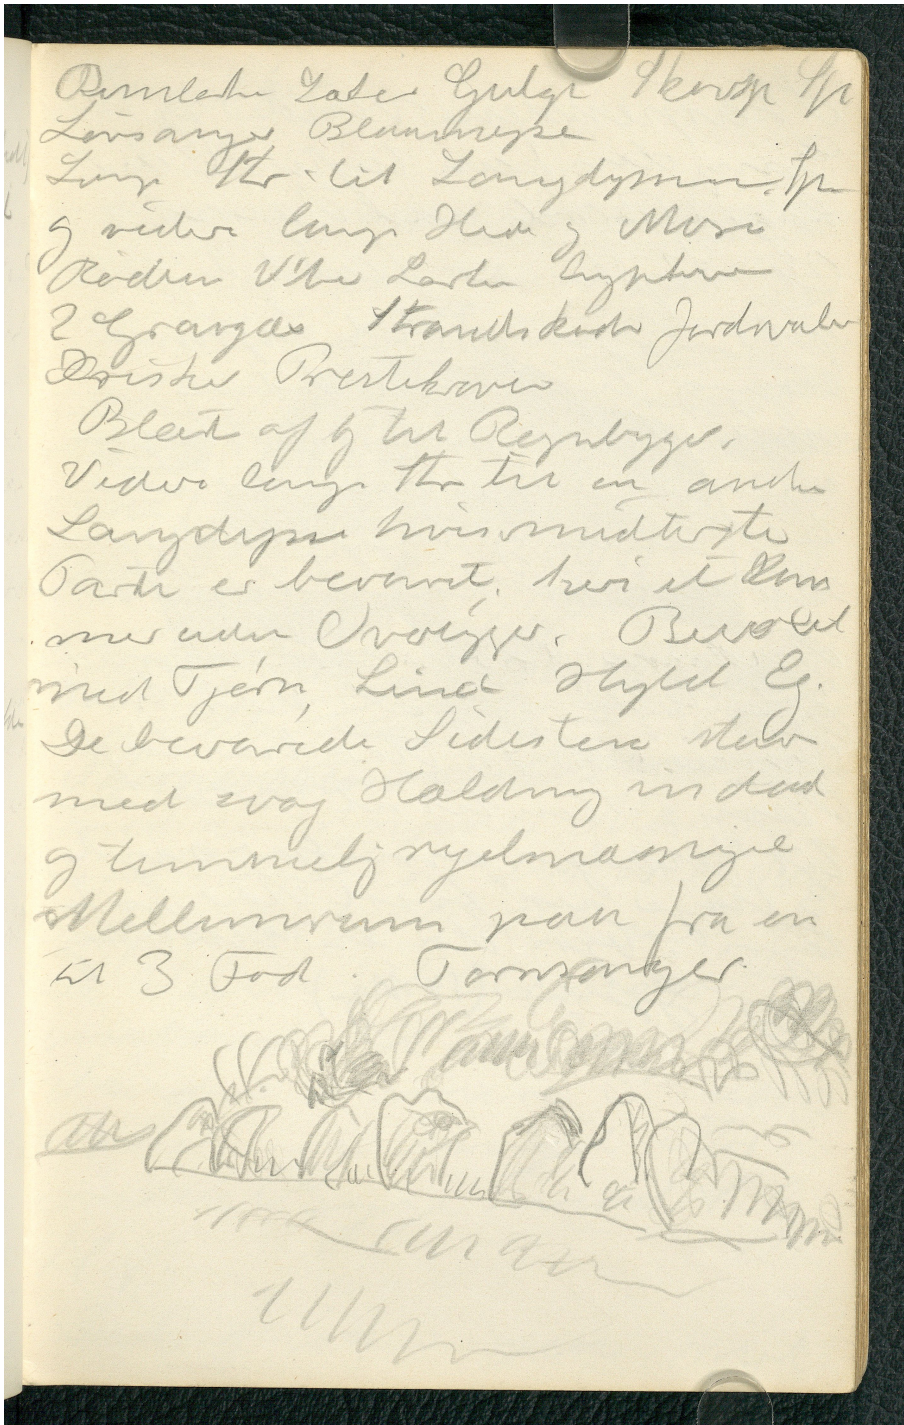 Bomlærke Later Gulgr Skovsp Sp
Løvsanger Blaamejse
Langs Str. til Langdyssen. Sp
og videre langs Hede og Mose
Rødben Vibe Lærke
2 Gravgæs Strandskade Jordsvaler
Irisker Præstekraver
Blæst af og til Regnbyger.
Videre langs Str til en anden
Langdysse hvis midterste
Parti er bevaret, heri et Kam
mer uden Overligger. Bevoxet
med Tjørn, Lind Hyld Eg.
De bevarede Sidestene staar
med svag Hældning indad
og temmelig regelmæssige
Mellemrum paa fra en
til 3 Fod. Tornsanger.